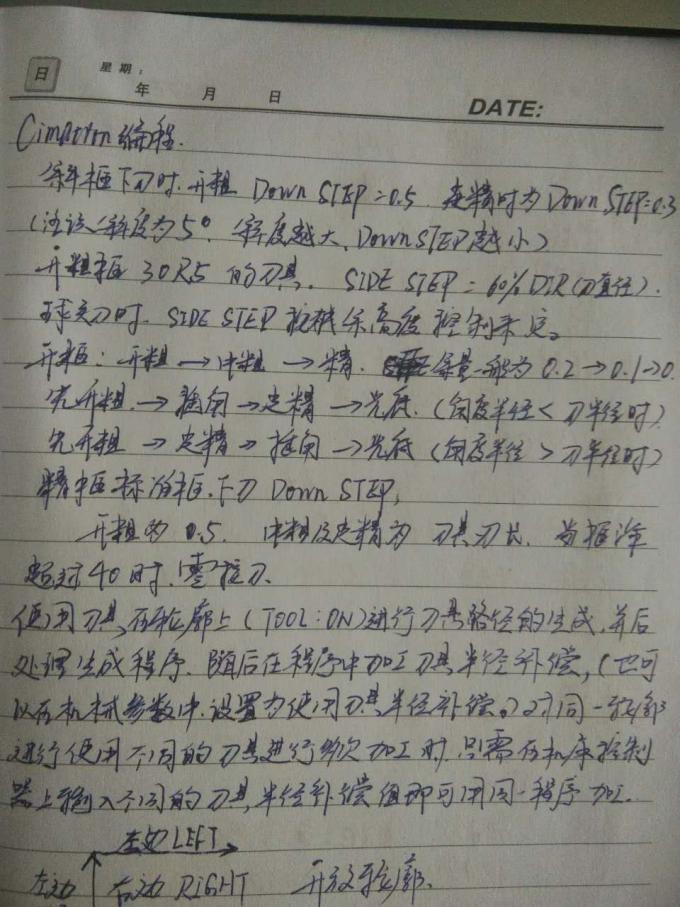 日 星期:
年 月 日 DATE:
Cimatron编程.
斜框下刀时.开粗 Down STEP=0.5. 走精时为Down STEP=0.3
(注该斜度为5° 斜度越大、Down STEP越小)
开粗框 30R5 的刀具. SIDE STEP = 60% DIR(刀直径).
球刀时. SIDE STEP 残余高度 控制来定。
开框: 开粗 → 中粗 → 精. 余量一般为 0.2→0.1→0.
先开粗. → 插角→走精 →光底. (角度半径<刀半径时)
先开粗 → 走精→ 插角→光底 (角度半径 > 刀半径时)
精框标准框.下刀 Down STEP,
开粗为 0.5. 中粗及走精为 刀具刃长. 当框深
超过40时.需拉刀.
使用刀具在轮廓上(TOOL:ON)进行刀具路径的生成,并后
处理生成程序.随后在程序中加工刀具半径补偿,(也可
以在机械参数中.设置为使用刀具半径补偿。)对同一轮廓
进行使用不同的刀具进行多次加工时.只需在机床控制
器上输入不同的刀具,半径补偿值即可用同一程序加工.
左边LEFT
左边 右边 RIGHT 开放轮廓.